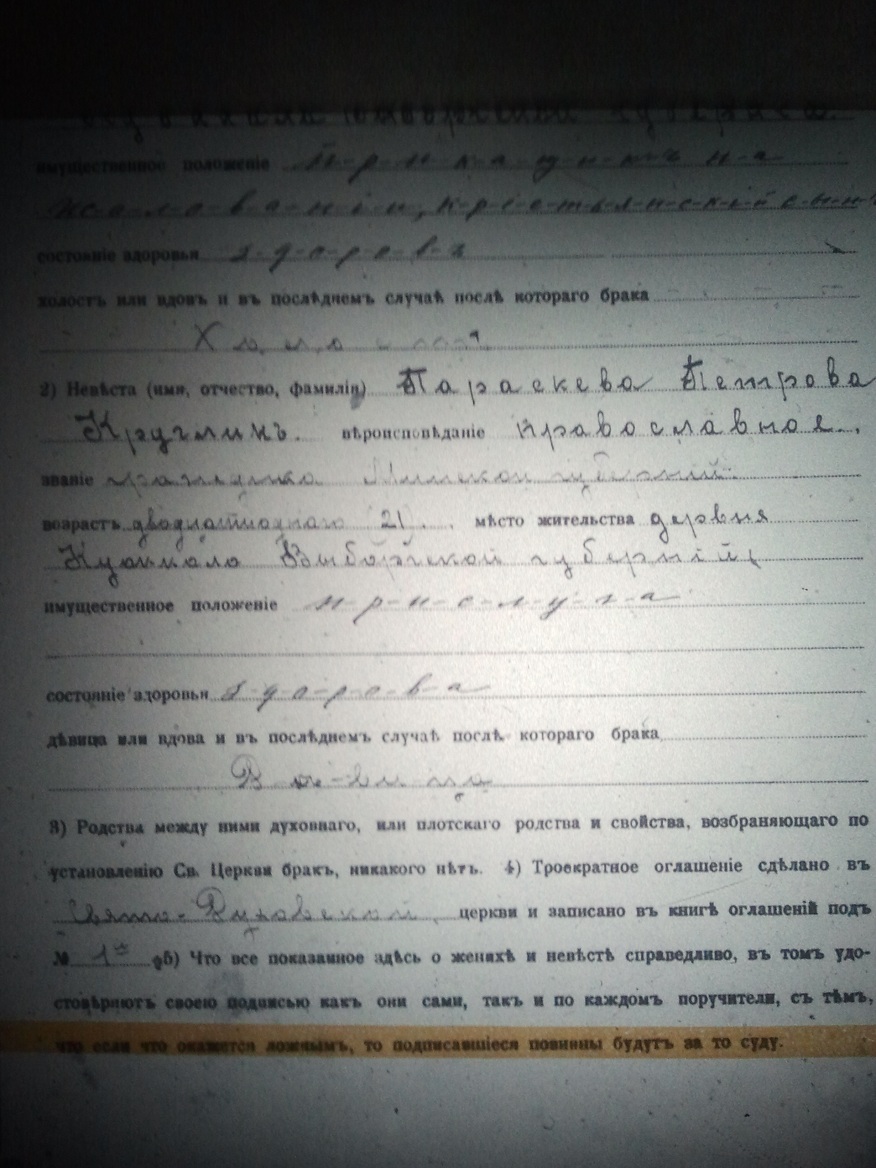 имущественное положеніе приказчикъ на
жалованіи, крестьянскій сынъ
состояніе здоровья здоровъ
холостъ или вдовъ и въ послѣднемъ случаѣ послѣ котораго брака
Холостъ
2) Невѣста (имя, отчество, фамилія) Параскева Петрова
Кругликъ. вѣроисповѣданіе православное.
званіе гражданка Минской губерніи.
возрастъ 21. мѣсто жительства деревня
Куоккало Выборгской губерніи
имущественное положеніе прислуга
состояніе здоровья здорова
дѣвица или вдова и въ послѣднемъ случаѣ послѣ котораго брака
Дѣвица
3) Родства между ними духовнаго, или плотскаго родства и свойства, возбраняющаго по
установленію Св. Церкви бракъ, никакого нѣтъ. 4) Троекратное оглашеніе сдѣлано въ
Свято-Духовской церкви и записано въ книгѣ оглашеній подъ
№ 1 5) Что все показанное здѣсь о женихѣ и невѣстѣ справедливо, въ томъ удо-
стовѣряютъ своею подписью какъ они сами, такъ и по каждомъ поручители, съ тѣмъ,
что если что окажется ложнымъ, то подписавшіеся повинны будутъ за то суду.